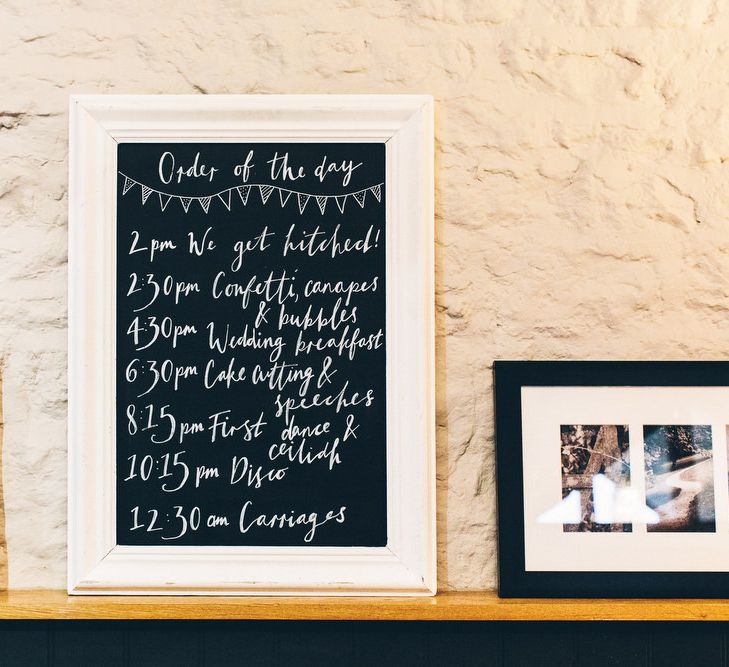 Order of the day
2pm We get hitched!
2:30pm Confetti, canapes
& bubbles
4:30pm Wedding breakfast
6:30pm Cake cutting &
speeches
8:15pm First dance &
ceilidh
10:15pm Disco
12:30am Carriages